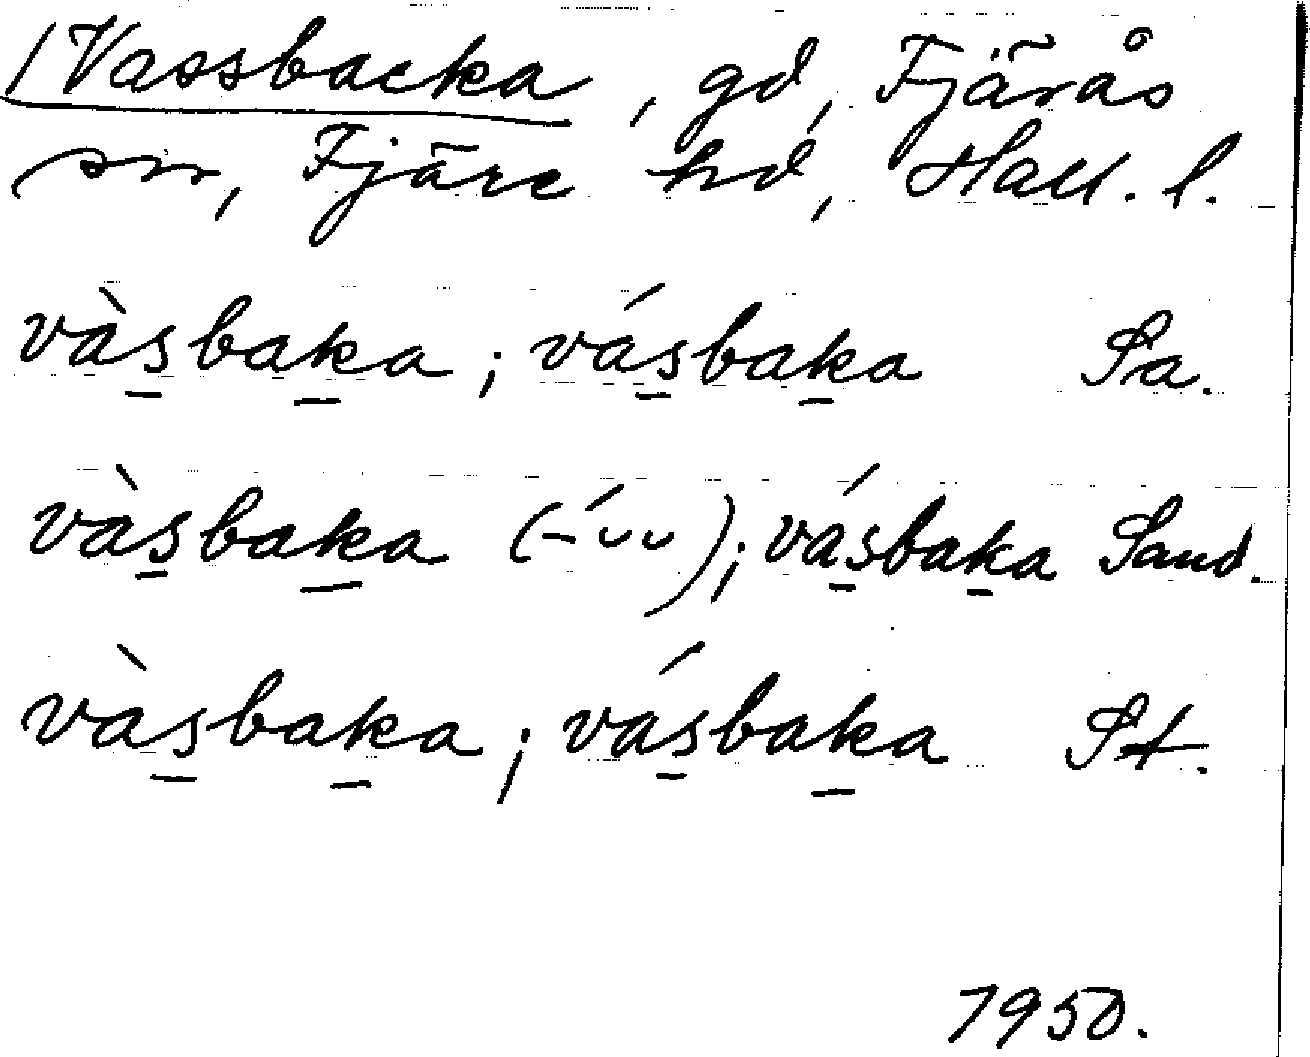 /Vassbacka, gd, Fjärås
sn, Fjäre hd, Hall. l.
vàs̲bak̲a; vás̲bak̲a Sa.
vàs̲bak̲a (-́ᴗᴗ); vás̲bak̲a Sand.
vàs̲bak̲a; vás̲bak̲a St.
1950.